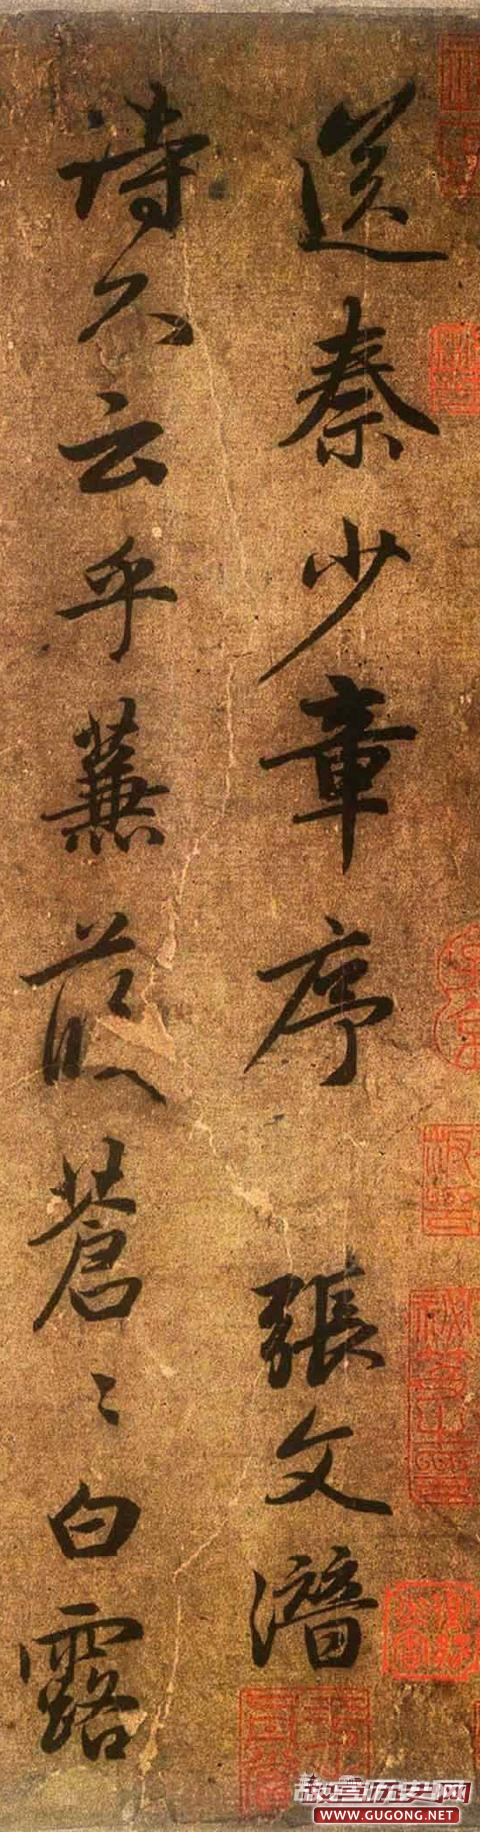 送秦少章序 張文潛
詩不云乎蒹葭蒼〻白露
故宫历史网
www.GUGONG.NET